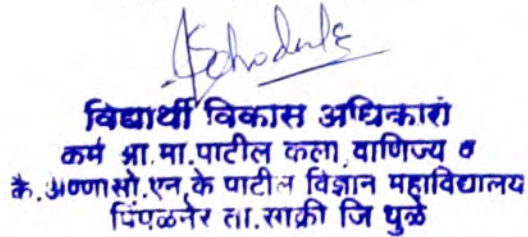 विद्यार्थी विकास अधिकारी
कर्म आ.मा.पाटील कला, वाणिज्य व
कै.अण्णासो.एन.के पाटील विज्ञान महाविद्यालय
पिंपळनेर ता.साक्री जि धुळे